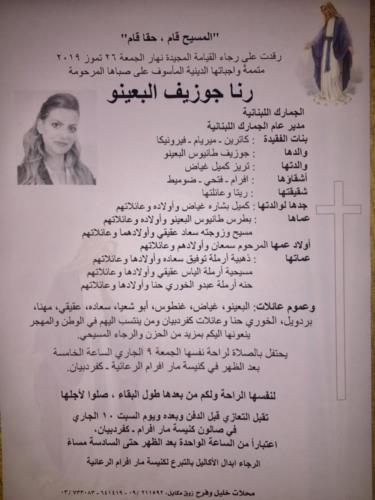 "المسيح قام ، حقا قام"
رقدت على رجاء القيامة المجيدة نهار الجمعة ٢٦ تموز ٢٠١٩
متممةً واجباتها الدينية المأسوف على صباها المرحومة
رنا جوزيف البعينو
الجمارك اللبنانية
مدير عام الجمارك اللبنانية
بنات الفقيدة : كاترين - ميريام - فيرونيكا
والدها : جوزيف طانيوس البعينو
والدتها : تريز كميل غياض
أشقاؤها : افرام - فتحي - ضوميط
شقيقتها : ريتا وعائلتها
جدها لوالدتها : كميل بشاره غياض وأولاده وعائلاتهم
عماها : بطرس طانيوس البعينو وأولاده وعائلاتهم
مسيح وزوجته سعاد عقيقي وأولادهما وعائلاتهم
أولاد عمها المرحوم سمعان وأولادهم وعائلاتهم
عماتها : ذهبية أرملة توفيق سعاده وأولادها وعائلاتهم
مسيحية أرملة الياس عقيقي وأولادها وعائلاتهم
حنه أرملة عبدو الخوري حنا وأولادها وعائلاتهم
وعموم عائلات: البعينو، غياض، غنطوس، أبو شعيا، سعاده، عقيقي، مهنا،
بردويل، الخوري حنا وعائلات كفردبيان ومن ينتسب اليهم في الوطن والمهجر
ينعونها اليكم بمزيد من الحزن والرجاء المسيحي.
يحتفل بالصلاة لراحة نفسها الجمعة ٩ الجاري الساعة الخامسة
بعد الظهر في كنيسة مار افرام الرعائية - كفردبيان.
لنفسها الراحة ولكم من بعدها طول البقاء ، صلوا لأجلها
تقبل التعازي قبل الدفن وبعده ويوم السبت ١٠ الجاري
في صالون كنيسة مار افرام - كفردبيان،
اعتباراً من الساعة الواحدة بعد الظهر حتى السادسة مساءً
الرجاء ابدال الأكاليل بالتبرع لكنيسة مار افرام الرعائية
محلات خليل وفرح زوق مكايل: ٠٩/٢١١٥٩٢ - ٦٤١٤١٩ - ٠٣/٧٣٣٠٨٣